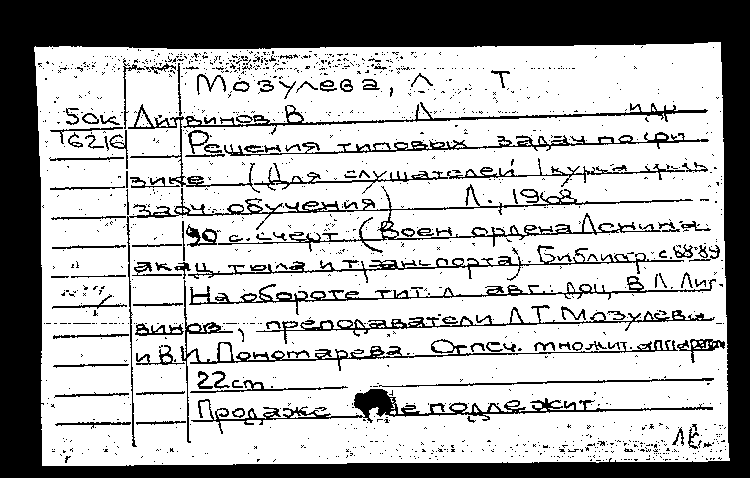 Мозулева, Л Т
50к Литвинов, В Л и др
16216 Решения типовых задач по фи
зике (Для слушателей I курса
заоч. обучения) Л., 1968
90 с. с черт (Воен. ордена Ленина
акад. тыла и транспорта). Библиогр: с. 88-89
На обороте тит. л. авт: доц. В Л. Лит-
винов, преподаватели Л Т. Мозулева
и В. И. Пономарева. Отпеч. множит. аппаратом
22 см.
Продаже не подлежит.
ЛБ